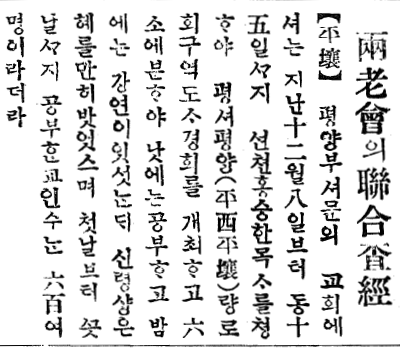 兩老會의聯合査經
【平壤】 평양부셔문외 교회에
셔는 지난十二月八일브터 동十
五일ᄭᆞ지 션쳔홍승한목ᄉᆞ를쳥
ᄒᆞ야 평셔평양(平西平壤)량로
회구역도ᄉᆞ경회를 개최ᄒᆞ고 六
소에분ᄒᆞ야 낫에는공부ᄒᆞ고 밤
에는 강연이잇섯는ᄃᆡ 신령샹은
혜를만히밧앗스며 첫날브터 ᄭᅳᆺ
날ᄭᆞ지 공부ᄒᆞᆫ교인수는 六百여
명이라더라